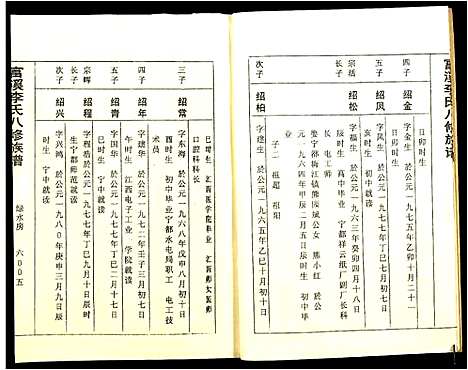 富溪李氏八修族谱
日卯时生
四子 绍金 字金 於公元一九七五年乙卯十月二十一
亥时生
五子 绍凤 字凤生 於公元
宗括 长子 绍松
辰时生 高中毕业 宁都祥云纸厂副厂长科
娄宁都梅江镇熊陂斌公女 熊小红 於公
元一九六四年甲辰二月五日辰时生 初中毕
子二 祖超 祖阳
次子 绍柏 字建生 於公元一九六五年乙巳十月初十
口腔科科长
三子 绍常 字东海 於公元一九六八年戊申八月初十日
酉时生 初中毕业宁都水电局职工 电工技
术员
四子 绍年 字建华 於公元一九七二年壬子三月初七日
午时生 江西电子工业学院就读
五子 绍青 字国华 於公元一九七七年丁巳十二月十日
宗晖 长子 绍程 字程浩 於公元一九七七年丁巳九月十日辰时
生 宁都师范就读
次子 绍兴 字兴鸿 於公元一九八〇年庚申三月九日辰
时生 宁中就读
富溪李氏八修族谱
绿水房
六〇〇五